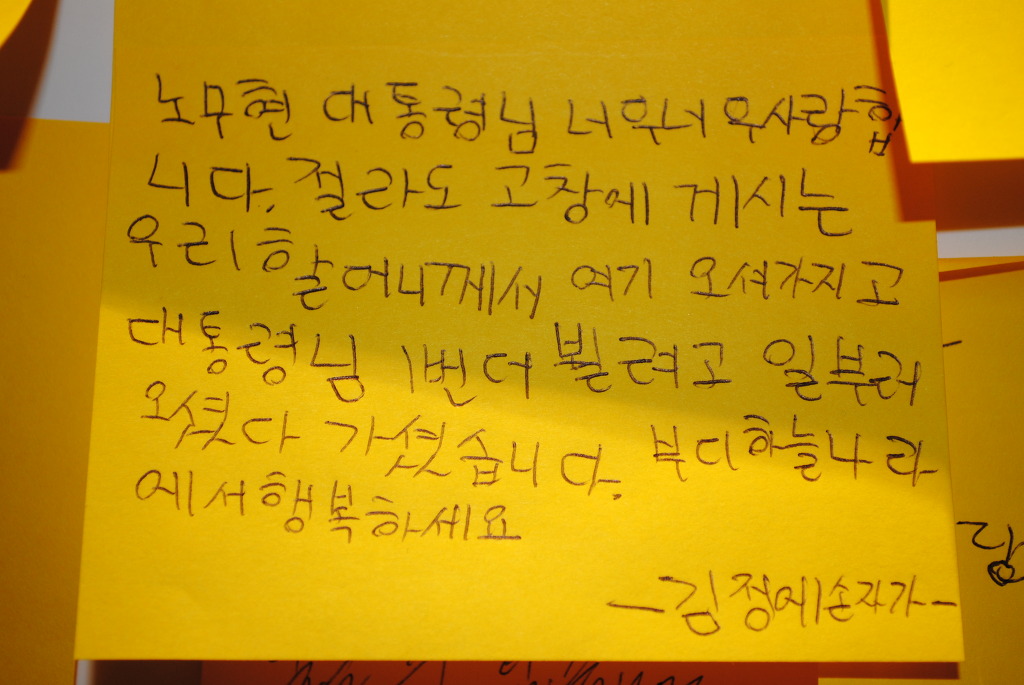 노무현 대통령님 너무너무사랑합
니다. 절라도 고창에 게시는
우리할어니께서 여기 오셔가지고
대통령님 1번더 뵐려고 일부러
오셨다 가셨습니다. 부디하늘나라
에서행복하세요
-김정에손자가-
당